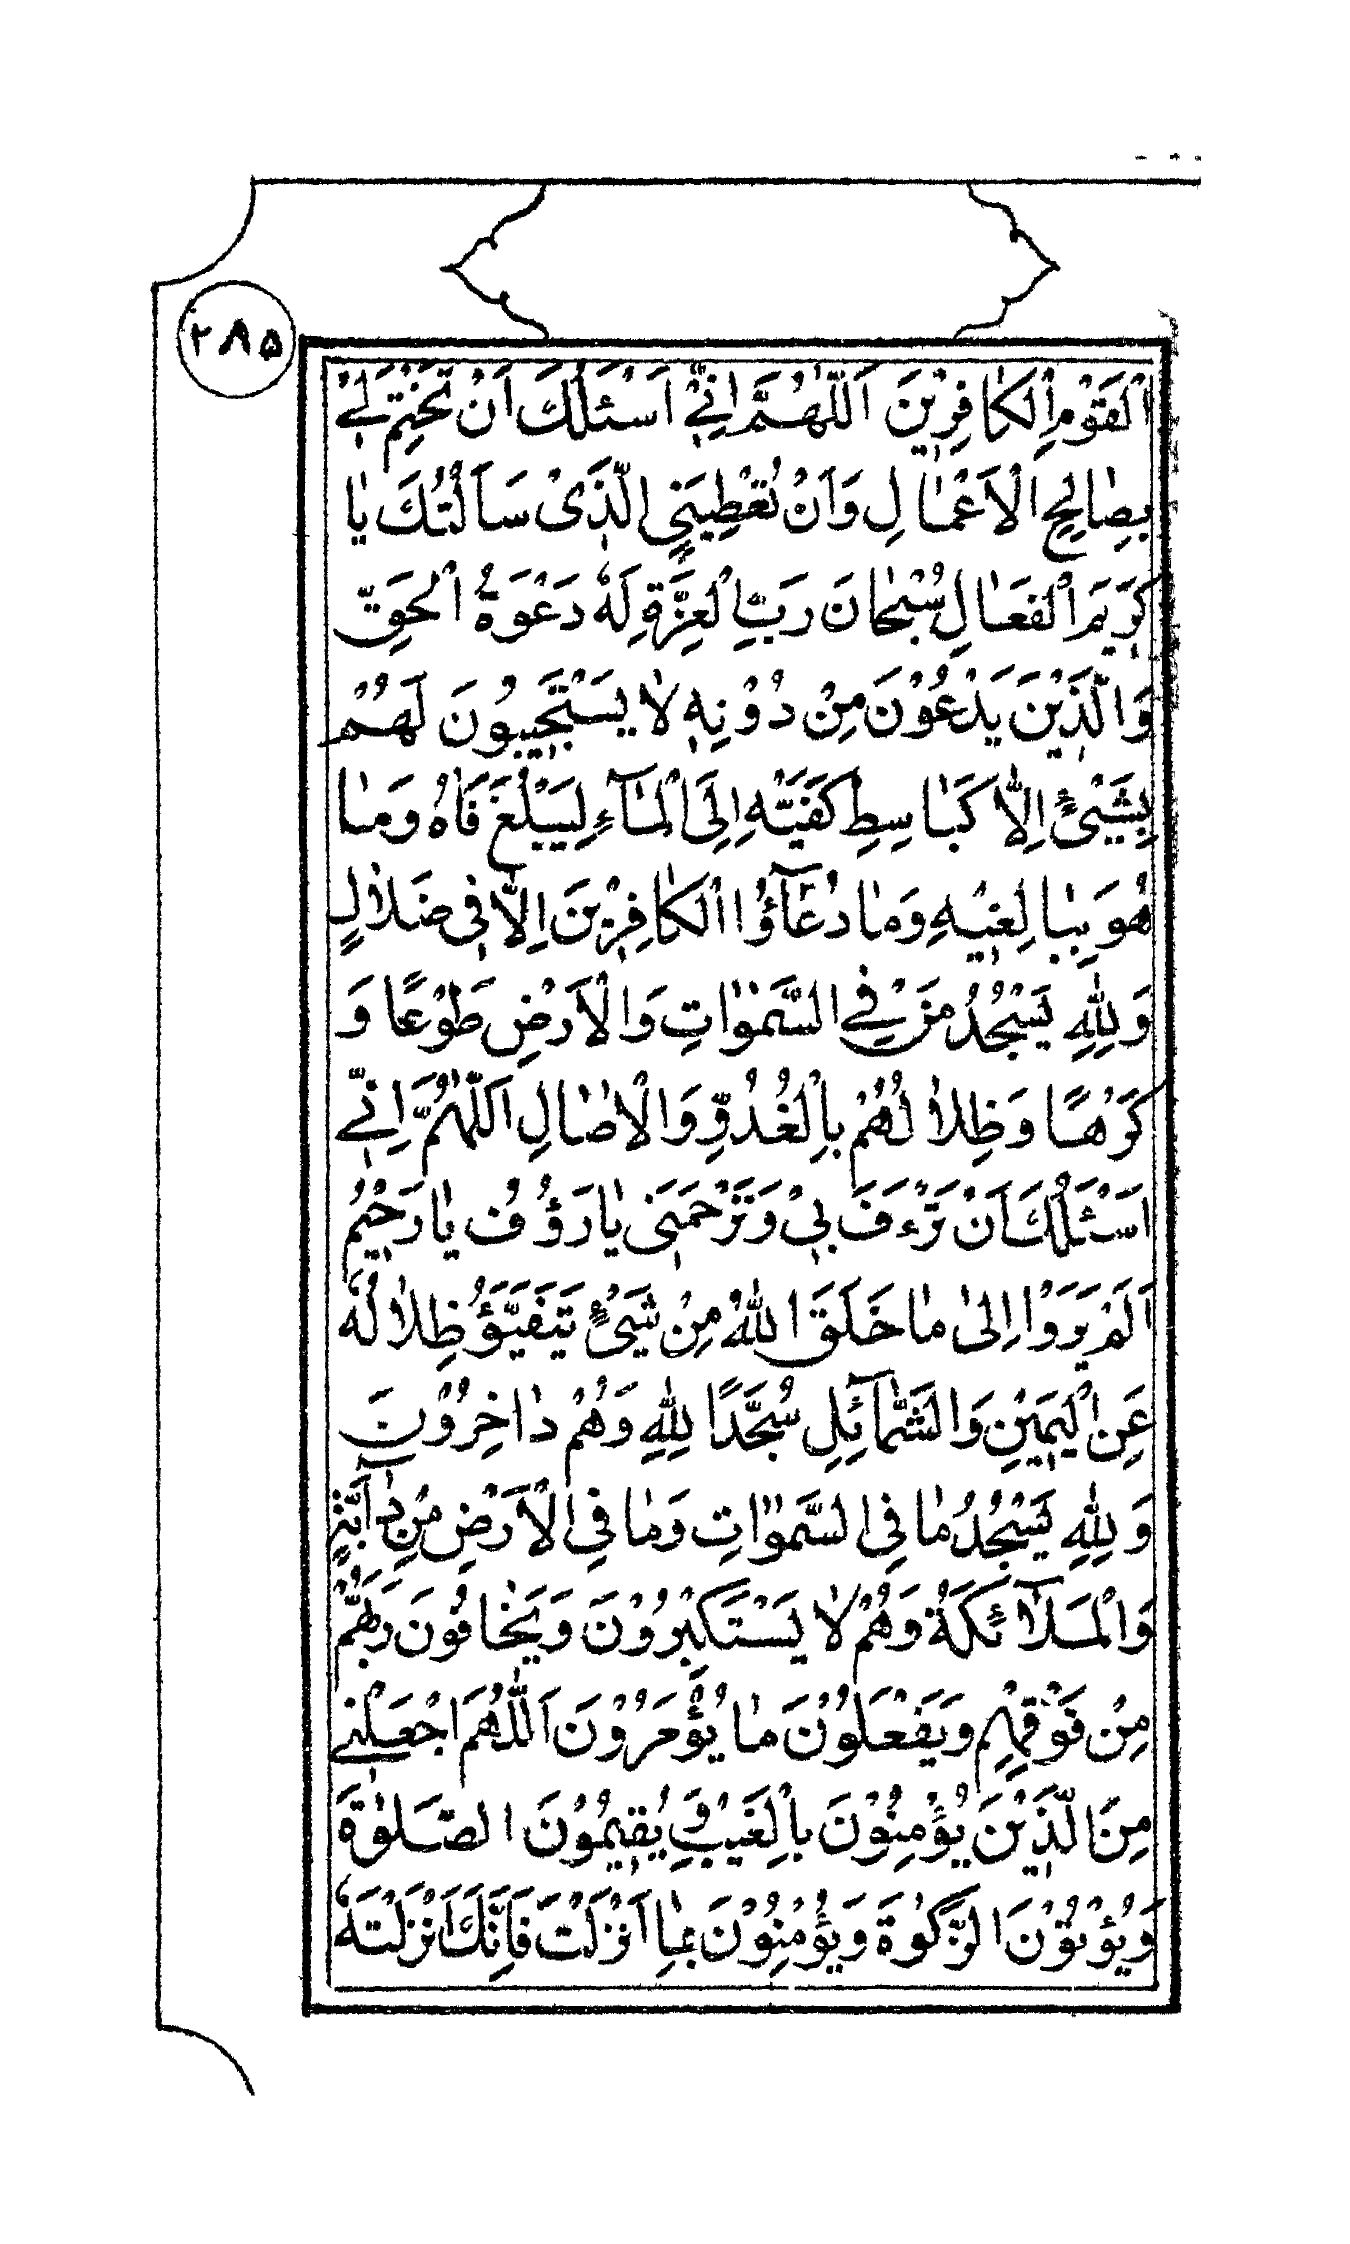 ۲۸۵
اَلْقَوْمِ الْكٰافِرِيْنَ اَللّٰهُمَّ اِنِّيْ اَسْئَلُكَ اَنْ تَخْتِمَ لِيْ
بِصٰالِحِ الْاَعْمٰالِ وَاَنْ تُعْطِيَنِي الَّذَىْ سَاَلْتُكَ يٰا
كَرِيَم الْفَعٰالِ سُبْحٰانَ رَبِّ الْعِزَّةِ لَهُ دَعْوَةُ الْحَقِّ
وَالَّذِيْنَ يَدْعُوْنَ مِنْ دُوْنِهِ لٰا يَسْتَجيِبُونَ لَهُمْ
بِشَيْئٍ اِلّٰا كَبٰاسِطِ كَفَيَّهِ اِلَى الْمٰاۤءِ لِيَبْلُغَ فَاهُ وَمٰا
هُوَ بِبٰالِغِيْهِ وَمٰا دُعٰاۤؤُا الْكٰافِرِيْنَ اِلّٰا فِى ضَلٰالٍ
وَلِلّٰهِ يَسْجُدُ مَنْ فِي السَّمٰوٰاتِ وَالْاَرْضِ طَوْعًا وَ
كَرْهًا وَظِلٰالُهُمْ بِالْغُدُوِّ وَالْاٰصٰالِ اَللّٰهُمَّ اِنِّے
اَسْئَلُكَ اَنْ تَرْءَفَ بِىْ وَتَرْحَمَنِى يٰا رَؤُفُ يٰا رَحْيُمِ
اَلَمْ يَرَوْا اِلىٰ مٰا خَلَقَ اللّٰهُ مِنْ شَىْئٍ تَيَفَيَّؤُ ظِلٰالُهُ
عَنِ الْيَمِيْنِ وَالشَّمٰاۤئِلِ سُجَّدًا لِلّٰهِ وَهُمْ دٰاخِرُوْنَ
وَلِلّٰهِ يَسْجُدُ مٰا فِى السَّمٰوٰاتِ وَمٰا فِى الْاَرْضِ مِنْ دٰاۤبَّةٍ
وَالْمَلٰاۤئِكَةُ وَهُمْ لٰا يَسْتَكْبِرُوْنَ وَيَخٰافُونَ رَبَّهُمْ
مِنْ فَوْقِهِمْ وَيَفْعَلُوْنَ مٰا يُؤْمَرُوْنَ اَللّٰهُمَّ اجْعَلْنِي
مِنَ الَّذِيْنَ يُؤْمِنُوْنَ بِالْغَيْبِ وَيُقيِمُوْنَ الصَّلٰوةَ
وَيُؤْتُوْنَ الزَّكٰوةَ وَيُؤْمِنُوْنَ بِمٰا اَنْزَلْتَ فَاِنَّكَ اَنْزَلْتَهُ